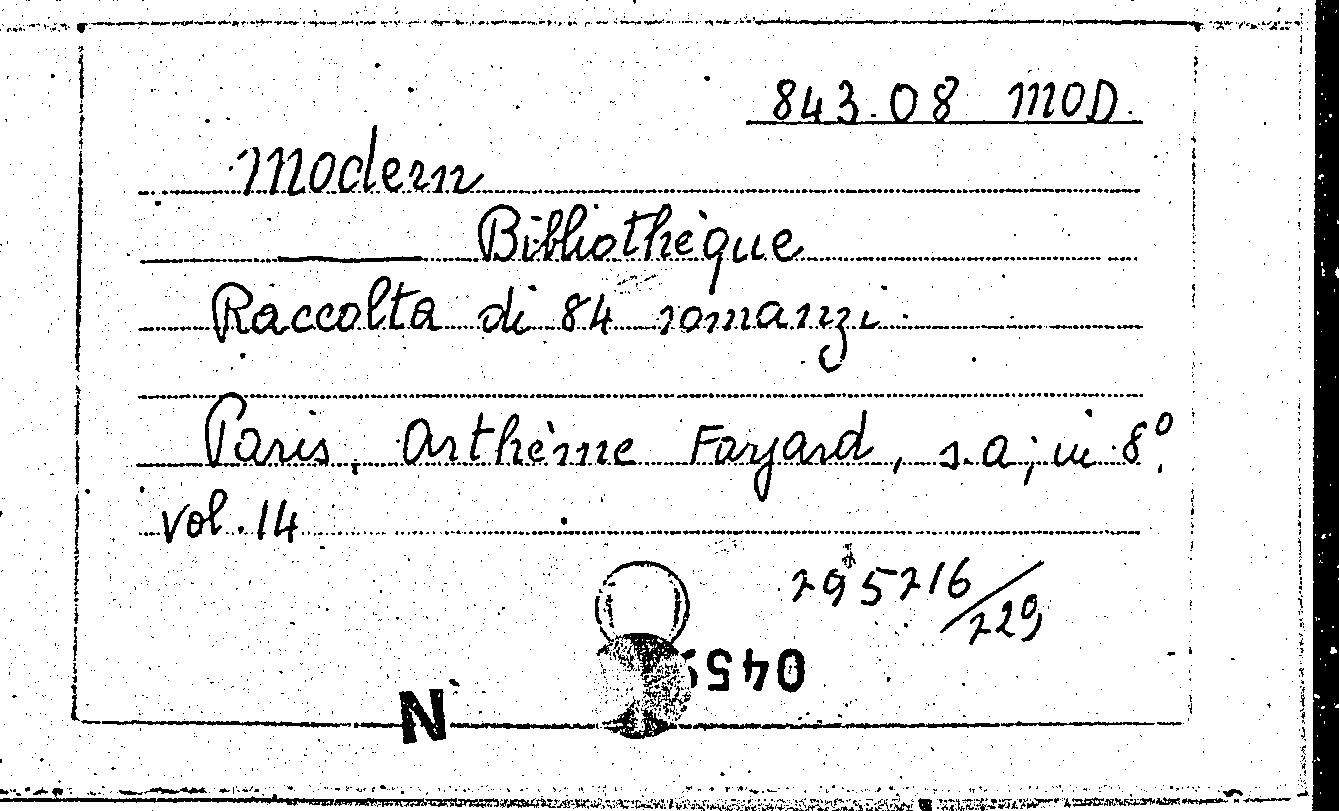 843.08 MOD.
Modern
Bibliothèque
Raccolta di 84 romanzi.
Paris, Arthème Fayard, s.a; in 8°.
vol. 14
295216/229
N